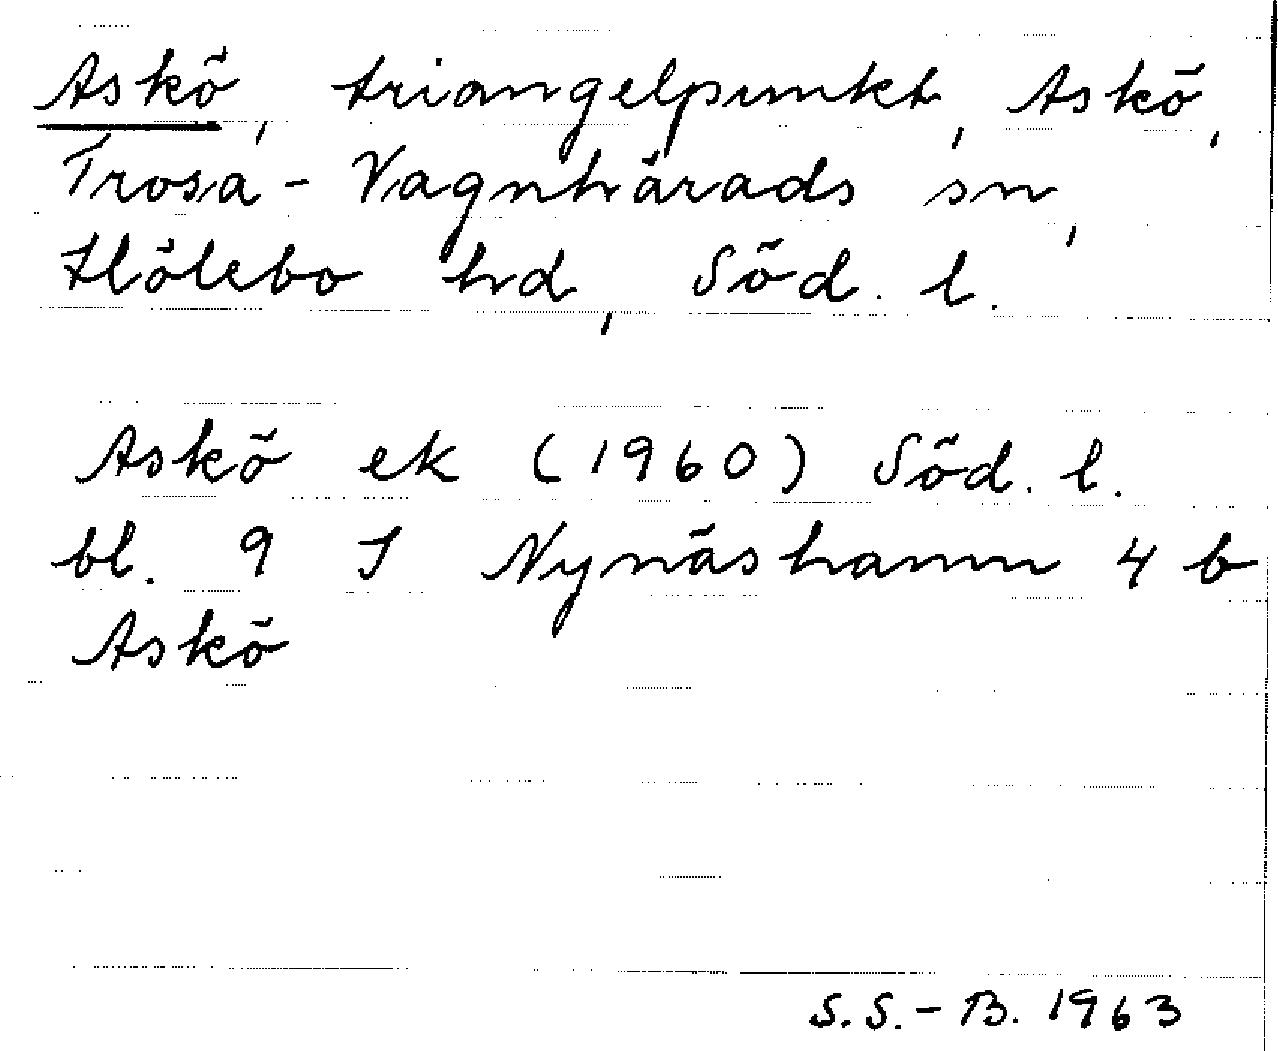 Askö, triangelpunkt, Askö,
Trosa-Vagnhärads sn,
Hölebo hd, Söd. l.
Askö ek (1960) Söd. l.
bl. 9 I Nynäshamn 4 b
Askö
S.S.-B. 1963